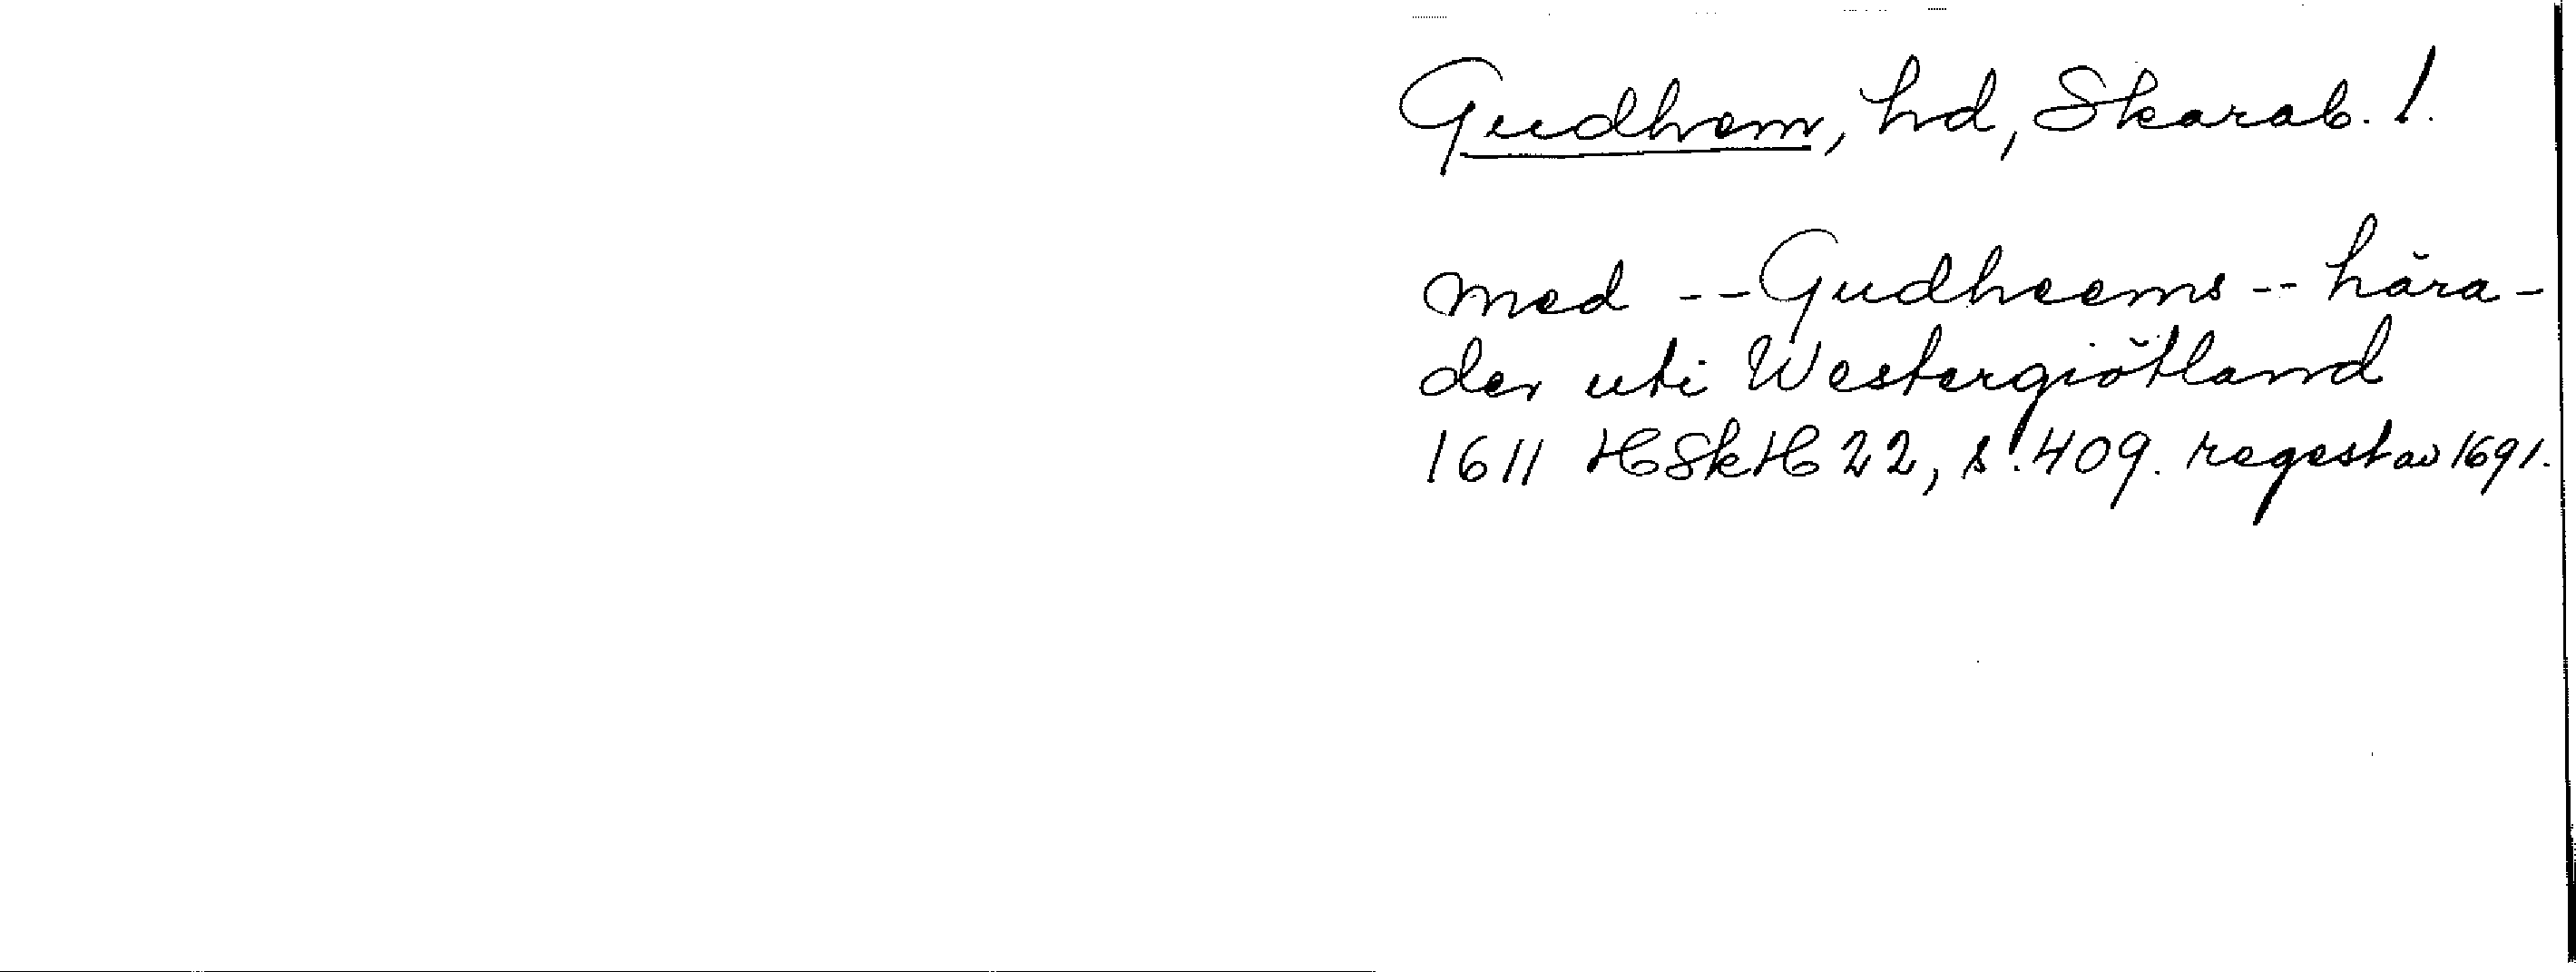 Gudhem, hd, Skarab. l.
med -- Gudheems -- hära-
der uti Westergiötland
1611 HSkH 22, s. 409. regest av 1691.